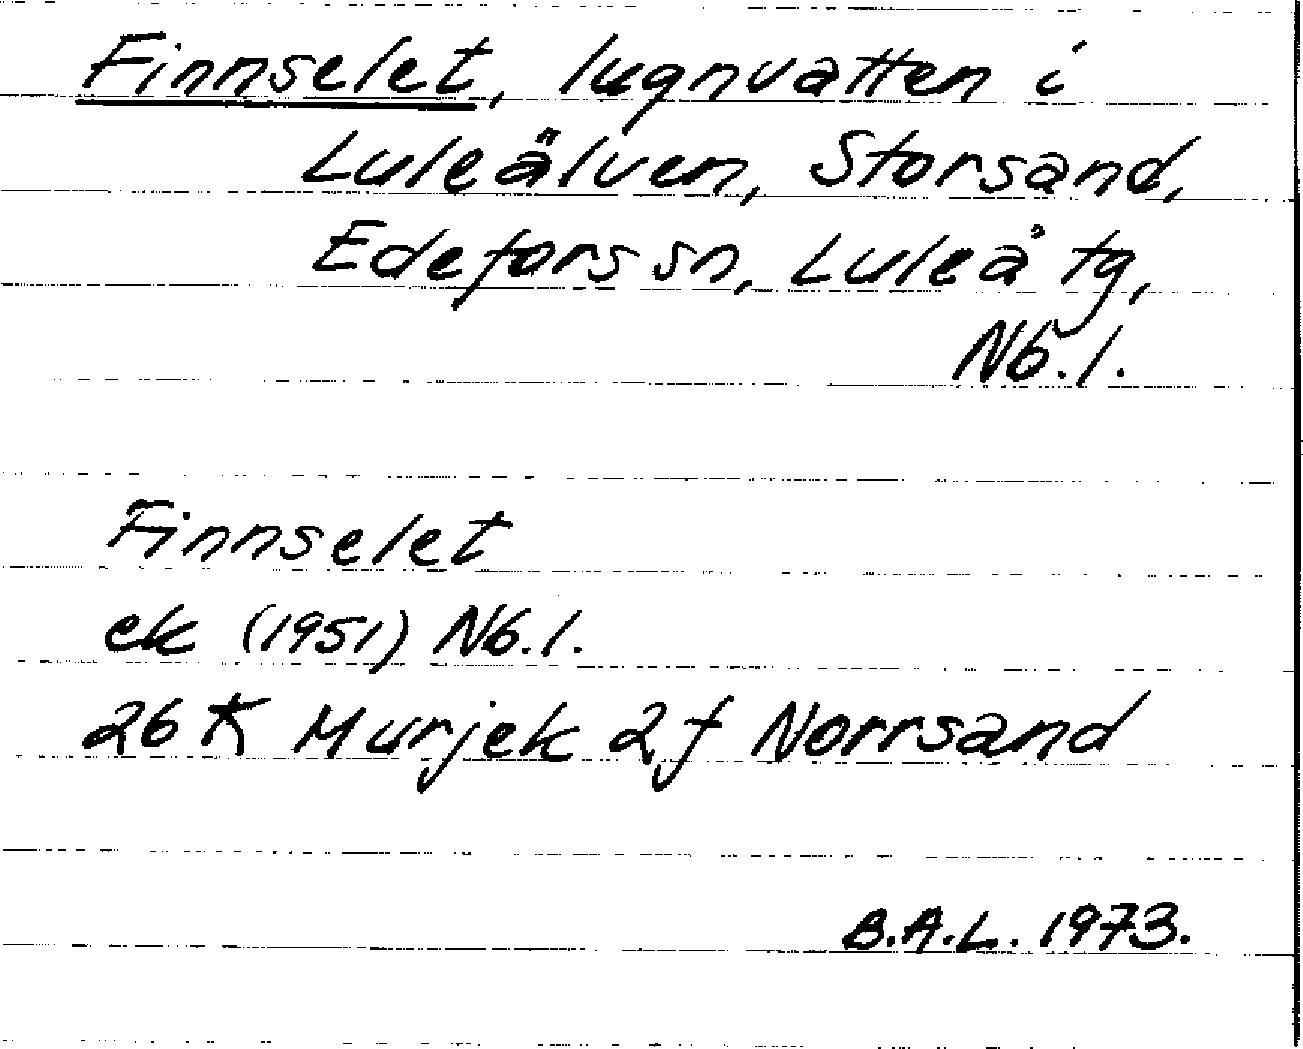 Finnselet, lugnvatten i
Luleälven, Storsand,
Edefors sn, Luleå tg,
Nb. l.
Finnselet
ek (1951) Nb. l.
26 K Murjek 2 f Norrsand
B.A.L. 1973.